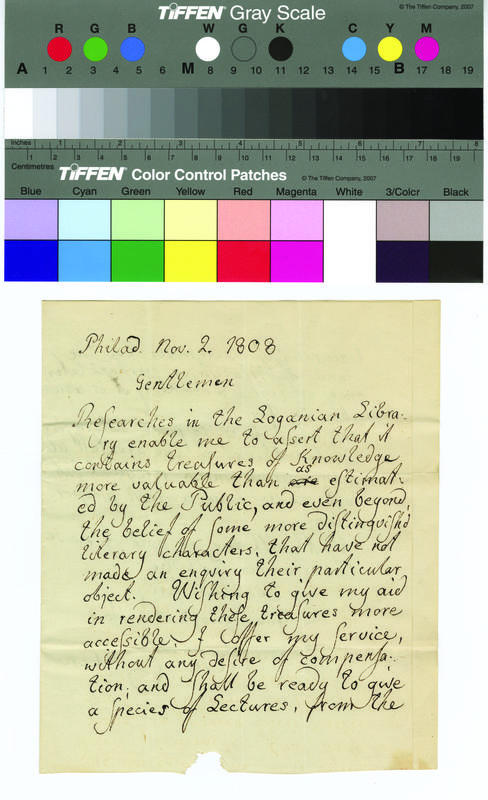 TIFFEN Gray Scale
© The Tiffen Company, 2007
R G B W G K C Y M
A 1 2 3 4 5 6 M 8 9 10 11 12 13 14 15 B 17 18 19
Inches 1 2 3 4 5 6 7
Centimetres 1 2 3 4 5 6 7 8 9 10 11 12 13 14 15 16 17 18 19
TIFFEN Color Control Patches
© The Tiffen Company, 2007
Blue Cyan Green Yellow Red Magenta White 3/Color Black
Philad. Nov. 2. 1808
Gentlemen
Researches in the Loganian Libra-
ry enable me to assert that it
contains treasures of Knowledge
more valuable than are as estimat-
ed by the Public, and even beyond
the belief of some more distinguishd
literary characters, that have not
made an enquiry their particular
object. Wishing to give my aid
in rendering these treasures more
accessible, I offer my service,
without any desire of compensa-
tion, and shall be ready to give
a species of Lectures, from the